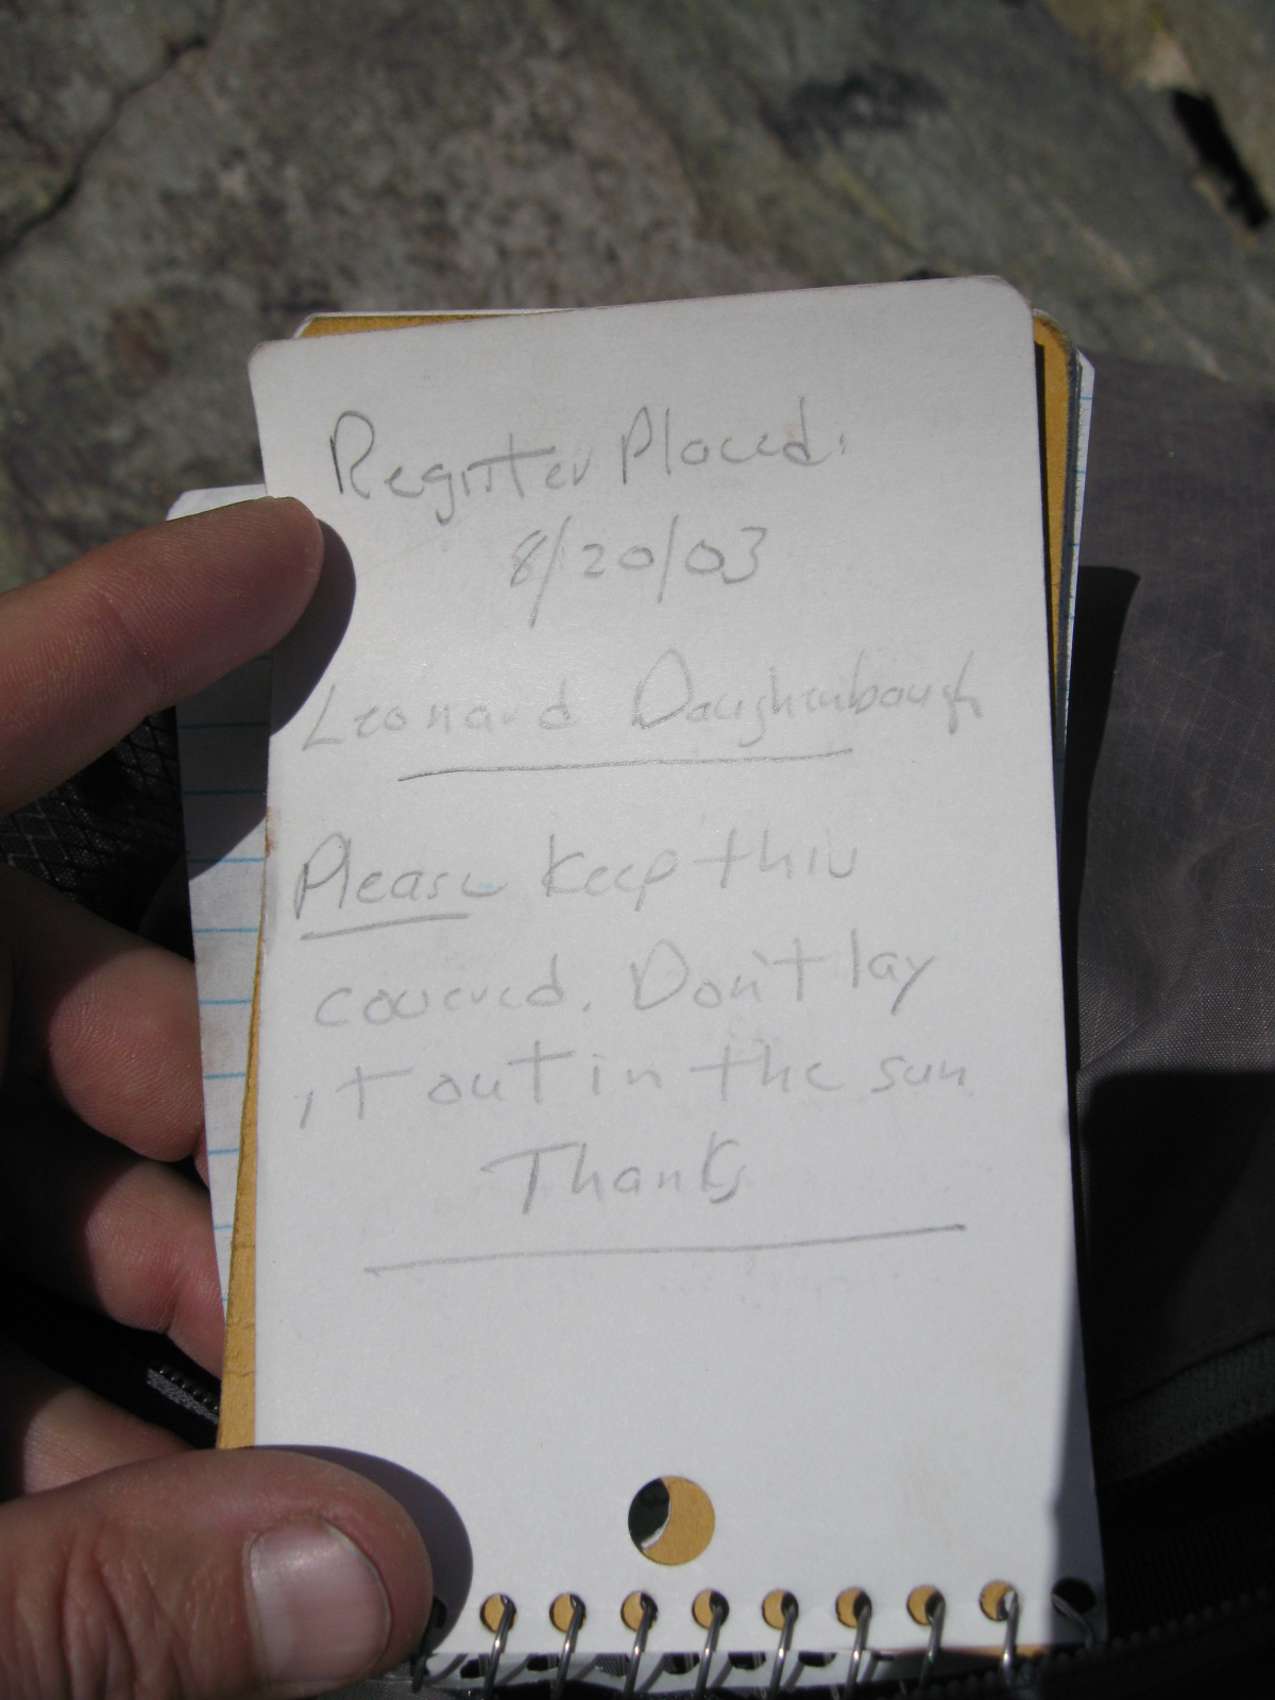 Register Placed:
8/20/03
Leonard Daughenbaugh
Please keep this
covered. Don't lay
it out in the sun
Thanks